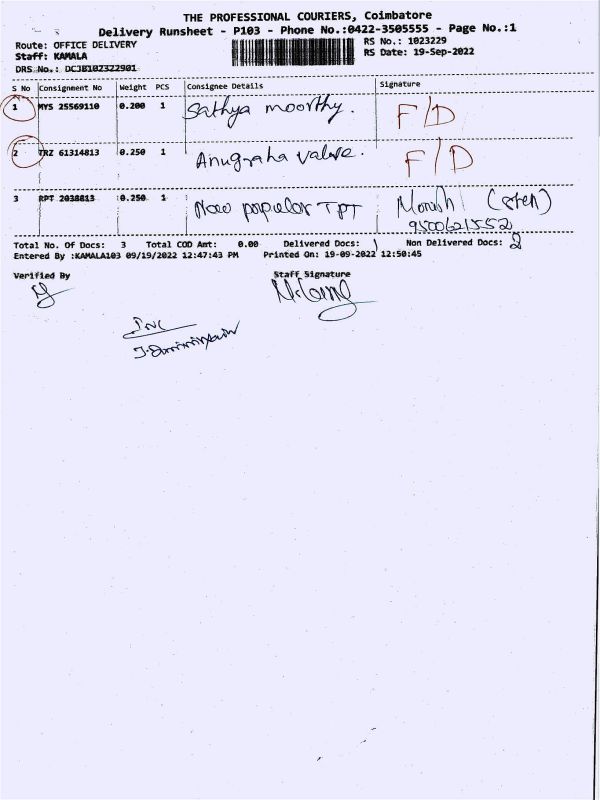 THE PROFESSIONAL COURIERS, Coimbatore
Delivery Runsheet - P103 - Phone No.:0422-3505555 - Page No.:1
Route: OFFICE DELIVERY RS No.: 1023229
Staff: KAMALA RS Date: 19-Sep-2022
DRS No.: DCJB102322901
S No Consignment No Weight PCS Consignee Details Signature
1 MYS 25569110 0.200 1 Sathya moorthy. F/D
2 TRZ 61314813 0.250 1 Anugraha valve. F/D
3 RPT 2038813 0.250 1 New popular TPT
9500621552
Total No. Of Docs: 3 Total COD Amt: 0.00 Delivered Docs: 1 Non Delivered Docs: 2
Entered By :KAMALA103 09/19/2022 12:47:43 PM Printed On: 19-09-2022 12:50:45
Verified By Staff Signature